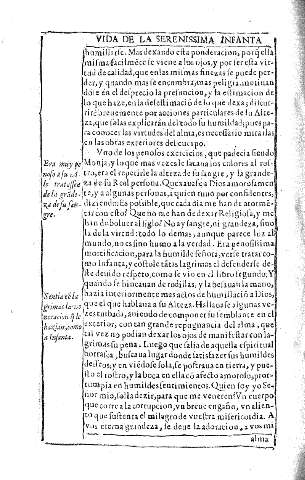 VIDA DE LA SERENISSIMA INFANTA
humillarse. Mas dexando esta ponderacion, porq̃ ella
misma facilmẽte se viene a los ojos, y por ser esta vir-
tud de calidad, que en las mismas finezas se puede per-
der, y quando mas se encumbra, mas peligra, mezian
dose en el desprecio la presuncion, y la estimacion de
lo que haze, en la desestimaciõ de lo que dexa; discur-
rirè brevemente por acciones particulares de su Alte-
za, que ellas explicaràn del todo su humildad, pues pa-
ra conocer las virtudes del alma, es necessario mirarlas
en las obras exteriores del cuerpo.
Vno de los penosos exercicios, que padecia siendo
Monja, y lo que mas vezes le sacava los colores al ros-
tro, era el repetirle la alteza de su sangre, y la grande-
za de su Real persona. Quexavase a Dios amorosamen-
te, y a algunas personas, a quien tuvo por confidentes,
diziendo: Es possible, que cada dia me han de atormẽ-
tar con esto? Que no me han de dexar Religiosa, y me
han de bolver al siglo? No ay sangre, ni grandeza, sino
la de la virtud: todo lo demas, aunque parece luz al
mundo, no es sino humo a la verdad. Era penosissima
mortificacion, para la humilde señora, verse tratar co-
mo Infanta, y costòle tãtas lagrimas el defenderse de-
ste devido respeto, como se viò en el libro segundo. Y
quando se hincavan de rodillas, y la besavan la mano,
hazia interiormente mas actos de humillaciõ a Dios,
que el que hablava a su Alteza. Hallavase algunas ve-
zes turbada, aviendo de componer su semblante en el
exterior, con tan grande repugnancia del alma, que
tal vez no podian dexar los ojos de manifestar con la-
grimas su pena. Luego que salia de aquella espiritual
borrasca, buscava lugar donde satisfazer sus humildes
desseos, y en viẽdose sola, se postrava en tierra, y pue-
sto el rostro, y la boca en ella cõ afecto amoroso, pror-
rumpia en humildes sentimientos. Quien soy yo Se-
ñor mio, solia dezir, para que me veneren? Vn cuerpo
que corre a la corrupcion, vn breve engaño, vn alien-
to que sustenta el milagro de vuestra misericordia. A
vos eterna grandeza, se deve la adoracion, a vos mi
alma
Era muy pe-
noso a su hu-
mildad
tratasse
de la grãde-
za de su san-
gre.
Sentia cõ la
primera la ve-
neraciõ q̃ le
hazian, como
a Infanta.